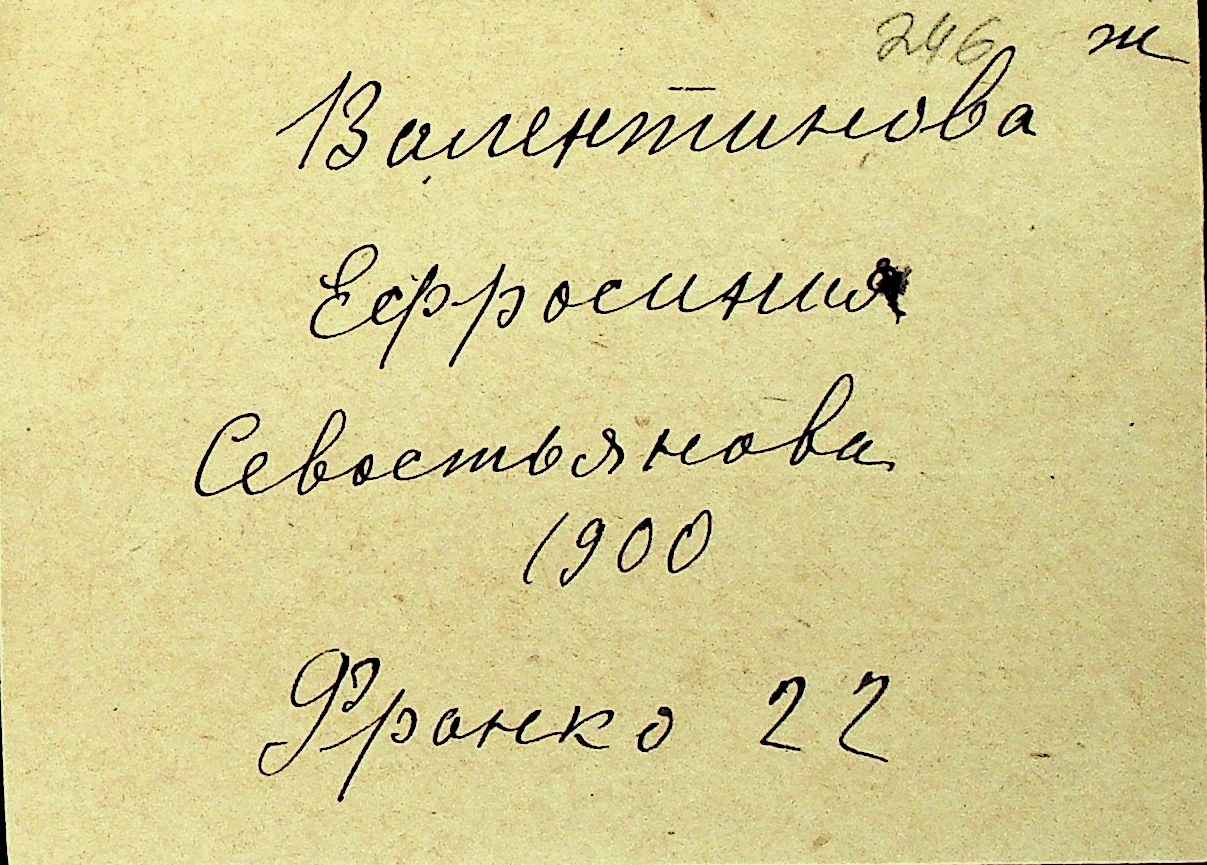 246 ж
Валентинова
Ефросиния
Севостьянова
1900
Франко 22